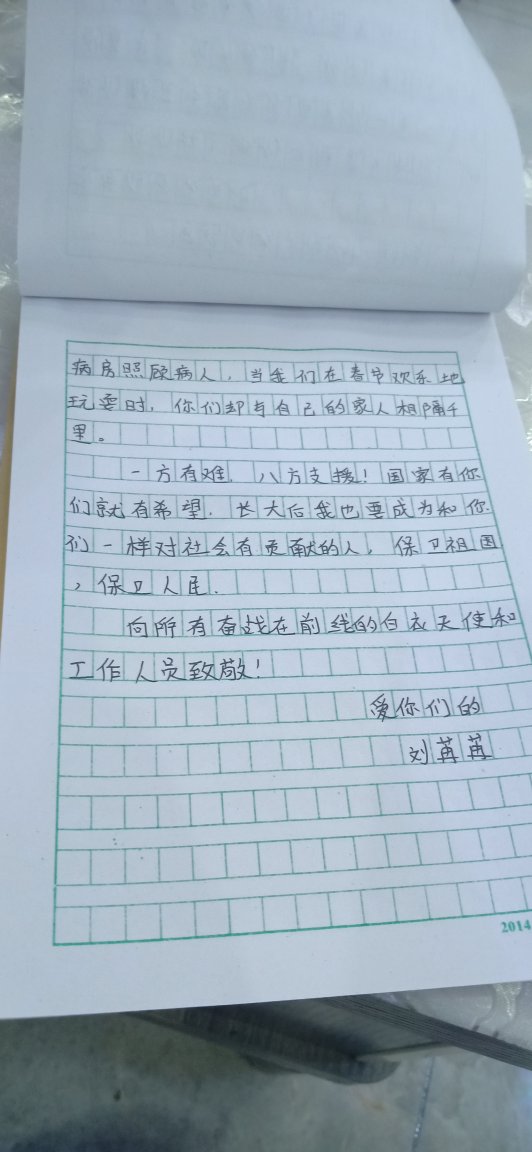 病房照顾病人，当我们在春节欢乐地
玩耍时，你们却与自己的家人相隔千
里。
一方有难，八方支援！国家有你
们就有希望，长大后我也要成为和你
们一样对社会有贡献的人，保卫祖国
，保卫人民．
向所有奋战在前线的白衣天使和
工作人员致敬！
爱你们的
刘苒苒
2014